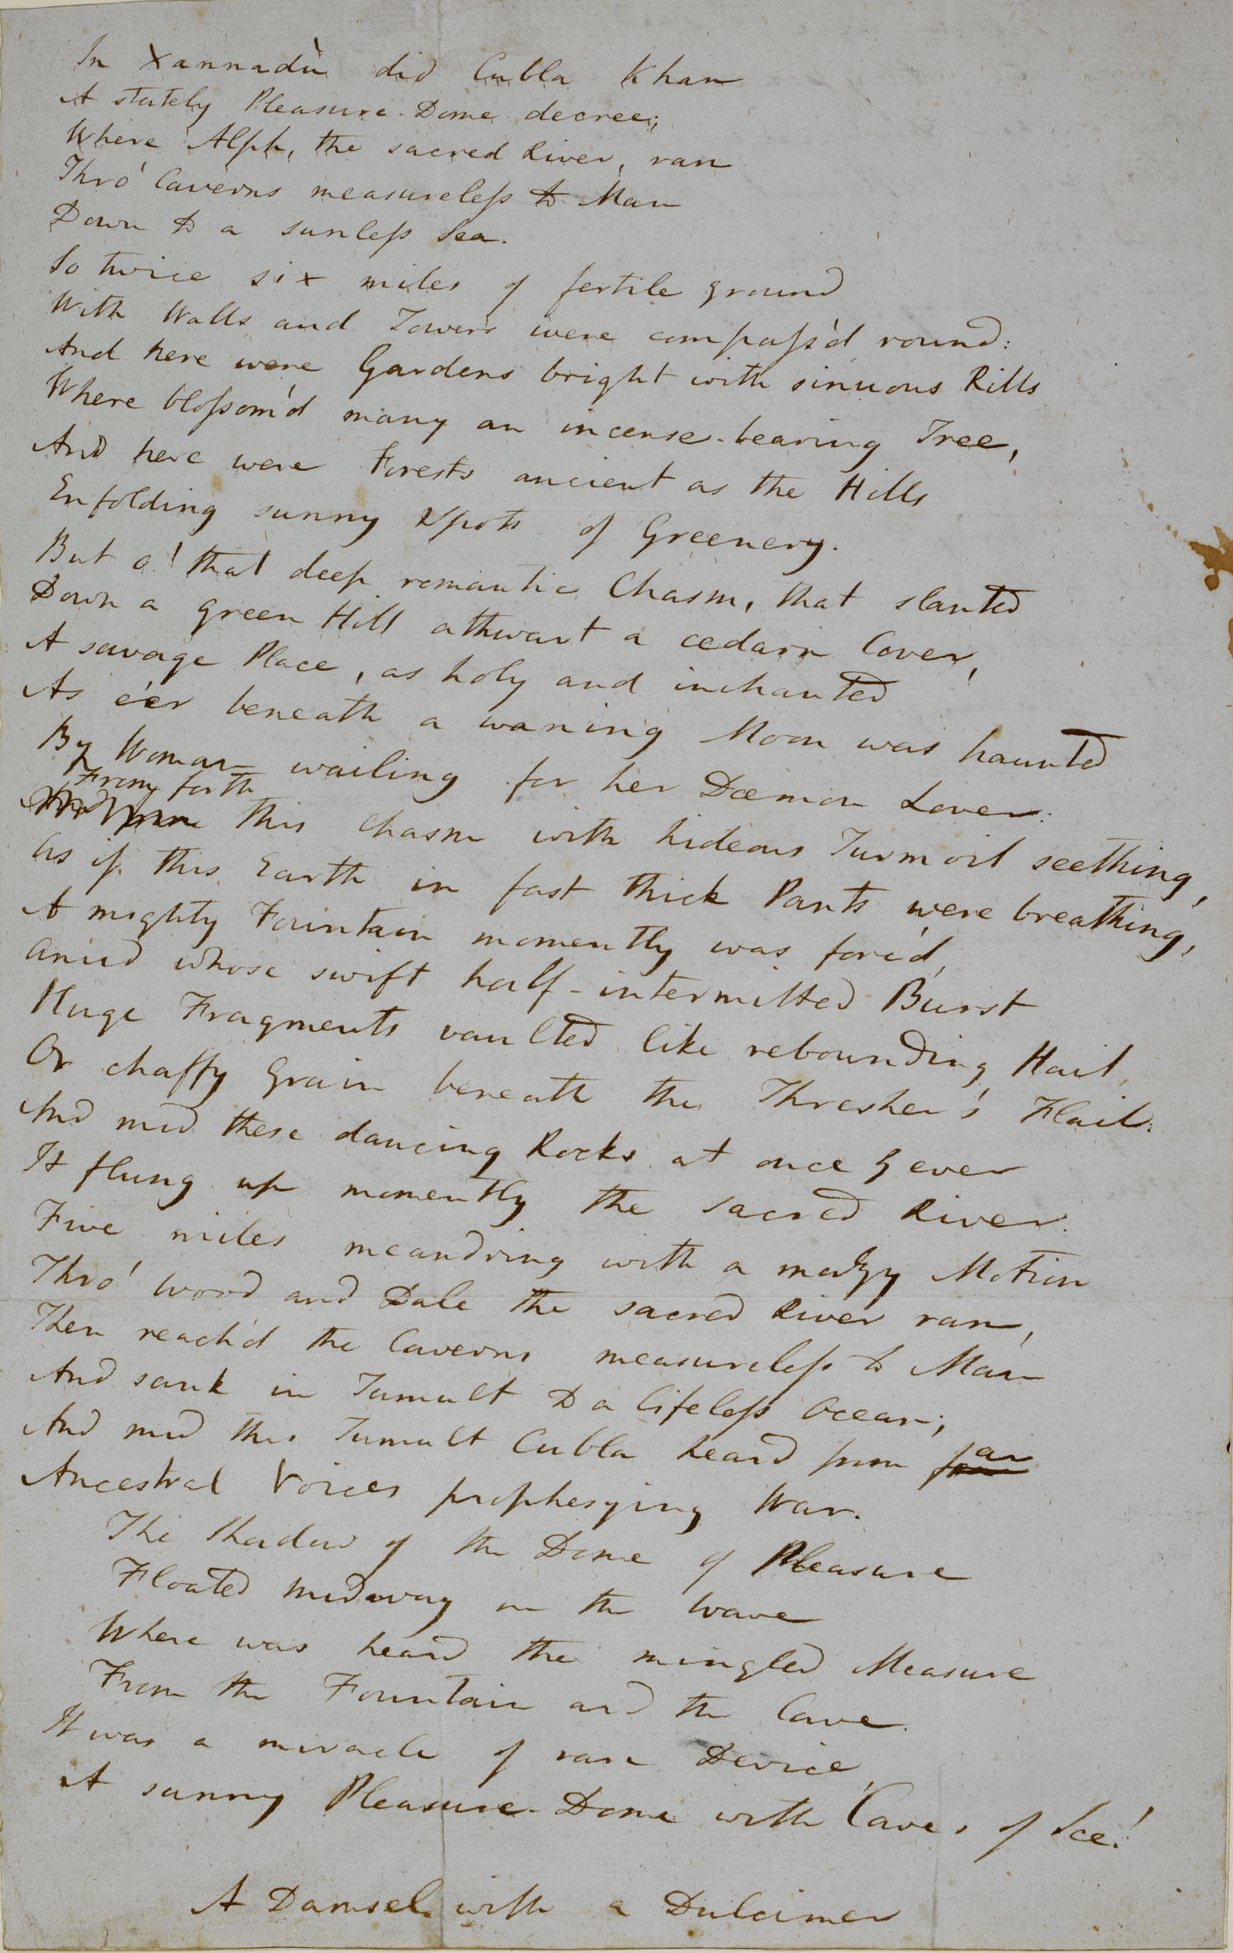 In Xannadù did Cubla Khan
A stately Pleasure-Dome decree;
Where Alph, the sacred River, ran
Thro' Caverns measureless to Man
Down to a sunless Sea.
So twice six miles of fertile ground
With Walls and Towers were compass'd round:
And here were Gardens bright with sinuous Rills
Where blossom'd many an incense-bearing Tree,
And here were Forests ancient as the Hills
Enfolding sunny Spots of Greenery.
But o! that deep romantic Chasm, that slanted
Down a green Hill athwart a cedarn Cover,
A savage Place, as holy and inchanted
As e'er beneath a waning Moon was haunted
By Woman wailing for her Dæmon Lover:
From forth
this Chasm with hideous Turmoil seething,
As if this Earth in fast thick Pants were breathing,
A mighty Fountain momently was forc'd,
Amid whose swift half-intermitted Burst
Huge Fragments vaulted like rebounding Hail,
Or chaffy Grain beneath the Thresher's Flail.
And mid these dancing Rocks at once & ever
It flung up momently the sacred River.
Five miles meandring with a mazy Motion
Thro' Wood and Dale the sacred River ran,
Then reach'd the Caverns measureless to Man
And sank in Tumult to a lifeless Ocean;
And mid this Tumult Cubla heard from far
Ancestral Voices prophesying War.
The Shadow of the Dome of Pleasure
Floated midway on the Wave
Where was heard the mingled Measure
From the Fountain and the Cave.
It was a miracle of rare Device,
A sunny Pleasure-Dome with Caves of Ice!
A Damsel with a Dulcimer